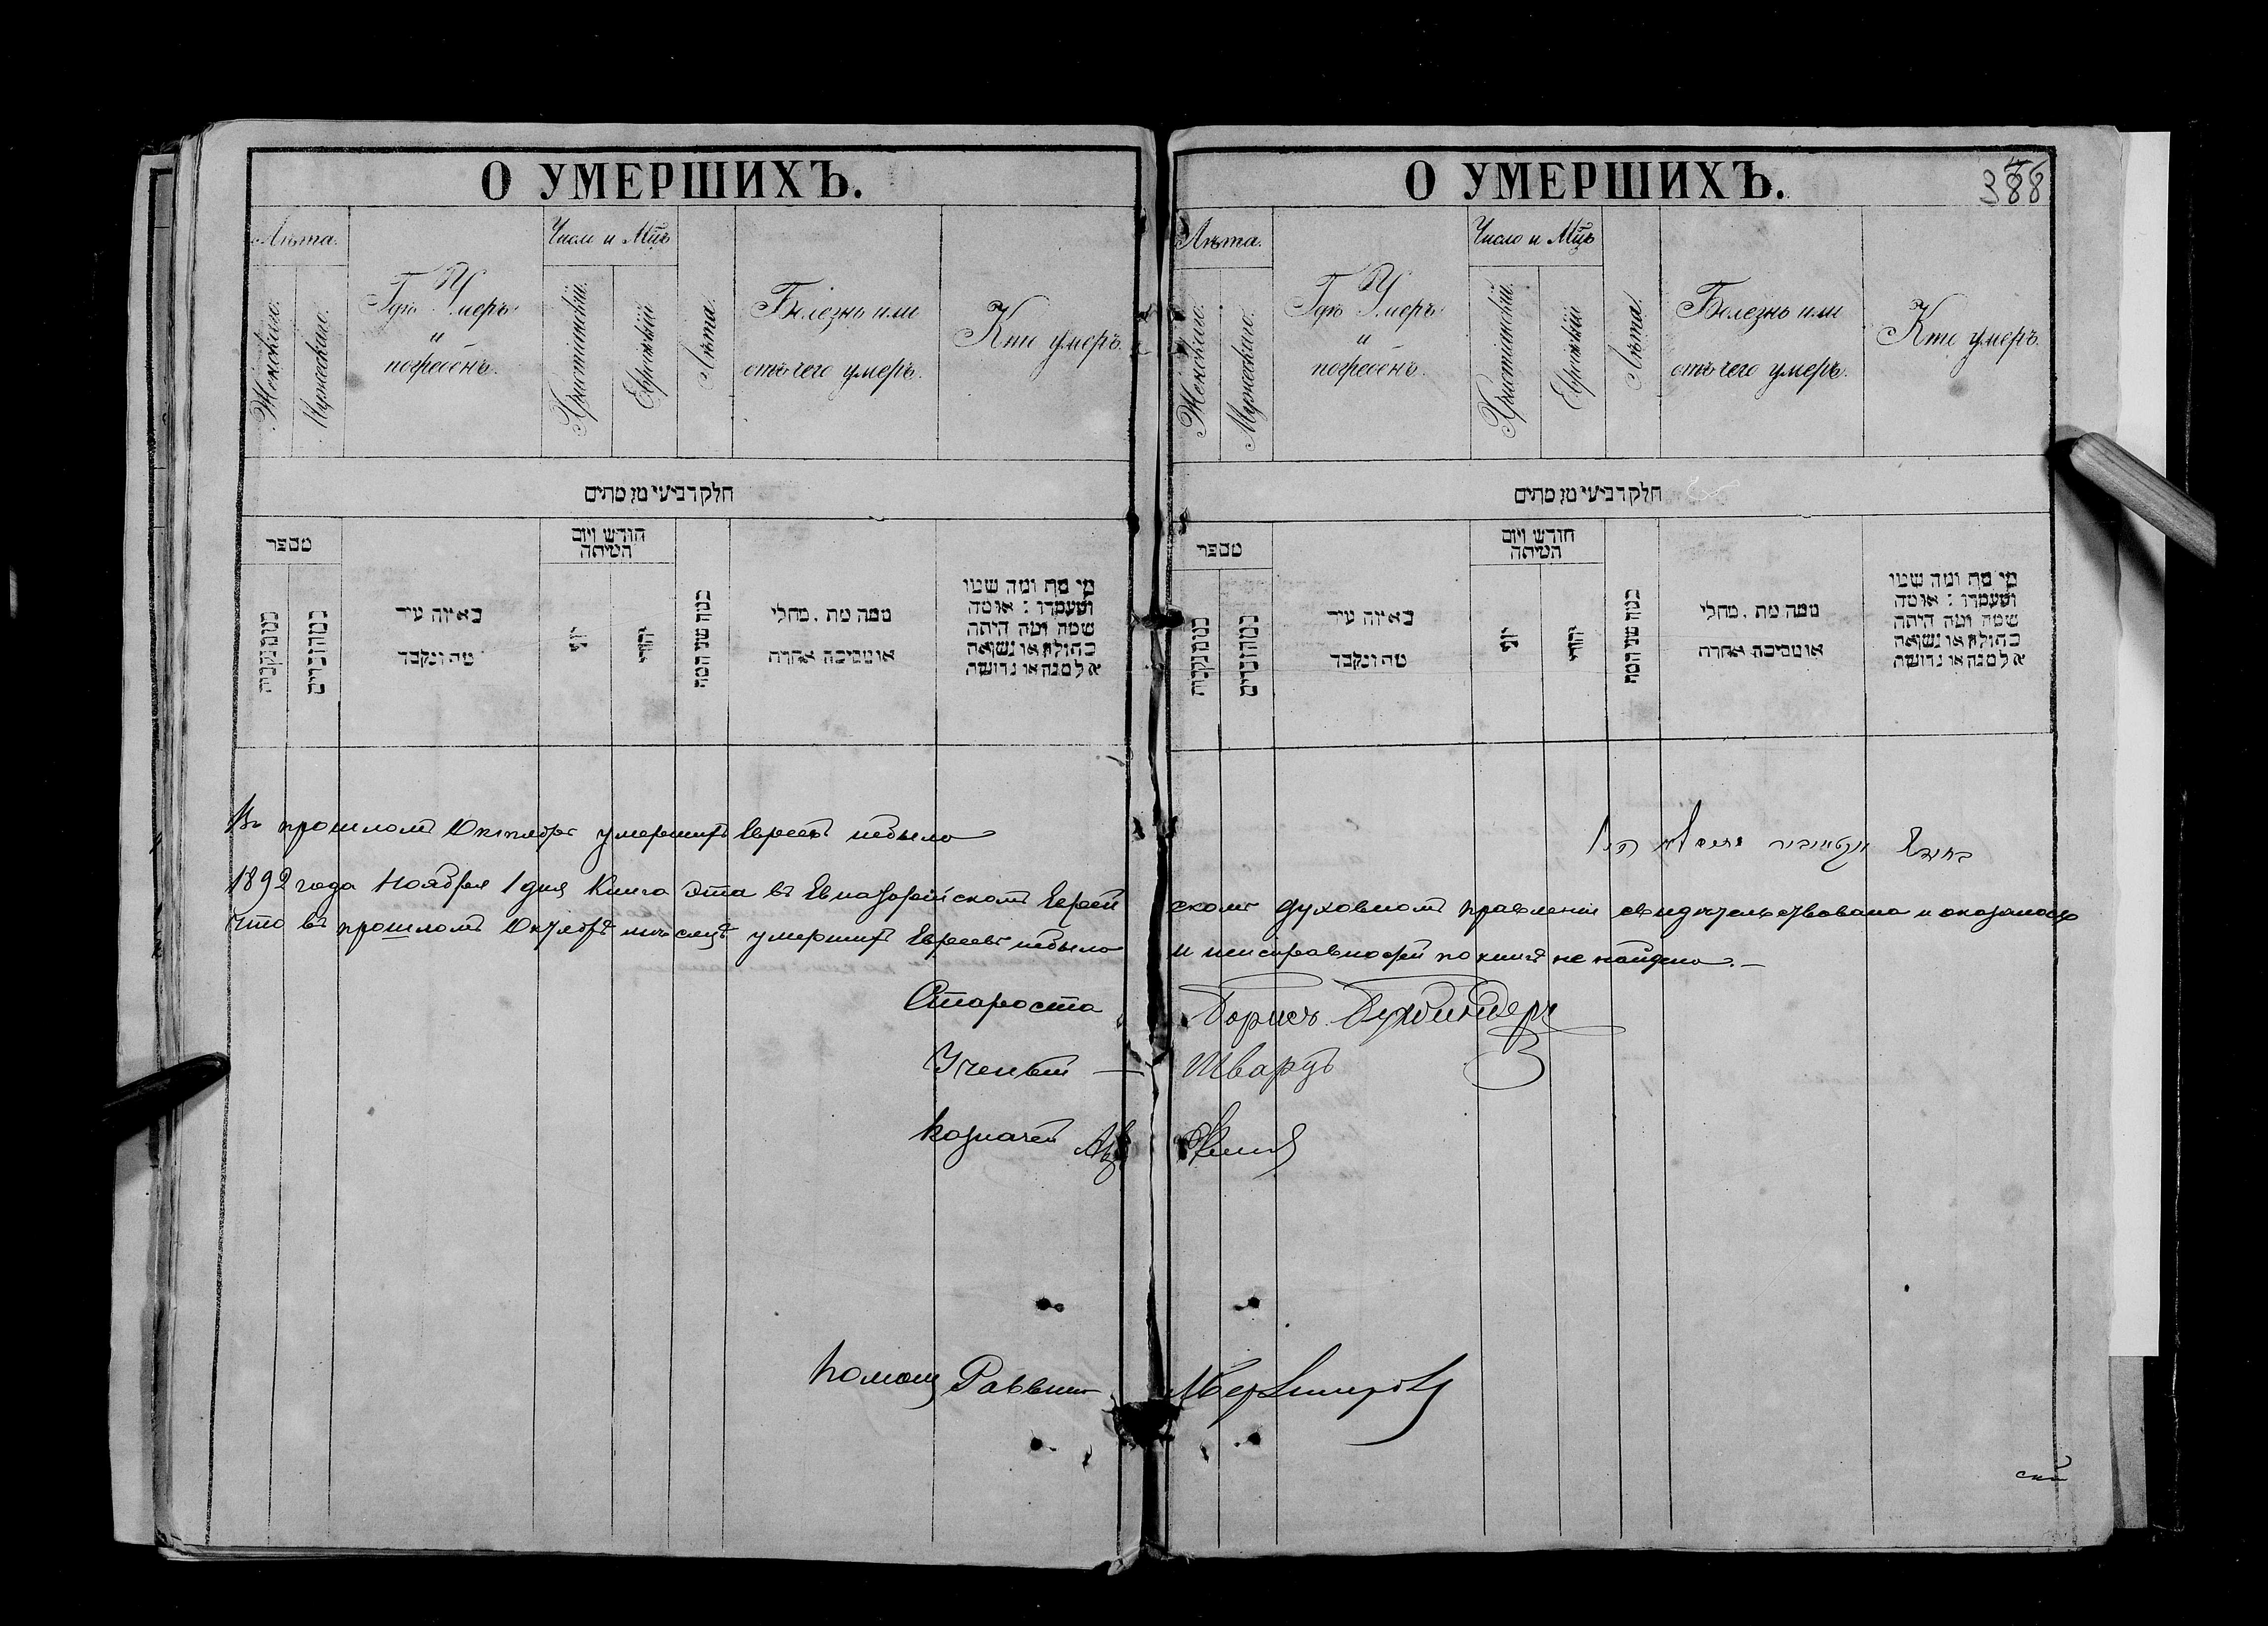 О УМЕРШИХЪ.
Лѣта.
Женскаго.
Мужескаго.
Гдѣ Умеръ
и
погребенъ.
Число и Мцъ
Христіанскій.
Еврейскій
Лѣта.
Болезнь или
отъ чего умеръ.
Кто умеръ.
חלק רביעי מן מתים
מספר
ממנקבות
ממהזכרים
באיזה עיר
מת ונקבר
חודש ויום
המיתה
יוני
יהודי
כמה שני המת
ממה מת . מחלי
או מסיבה אחרת
מי מת ומה שמו
ומעמדו : או מה
שמה ומה היתה
בתולה או נשואה
אלמנה או גרושה
Въ прошломъ Октябрѣ умершихъ Евреевъ небыло
1892 года Ноября 1 дня Книга эта въ Евпаторійскомъ Еврей
что въ прошломъ Октябрѣ мѣсяцѣ умершихъ Евреевъ небыло
Староста
Ученый —
Казначей
Помощ Раввина
О УМЕРШИХЪ.
388
Лѣта.
Женскаго.
Мужескаго.
Гдѣ Умеръ
и
погребенъ.
Число и Мцъ
Христіанскій.
Еврейскій
Лѣта.
Болезнь или
отъ чего умеръ.
Кто умеръ.
חלק רביעי מן מתים
מספר
ממנקבות
ממהזכרים
באיזה עיר
מת ונקבר
חודש ויום
המיתה
יוני
יהודי
כמה שני המת
ממה מת . מחלי
או מסיבה אחרת
מי מת ומה שמו
ומעמדו : או מה
שמה ומה היתה
בתולה או נשואה
אלמנה או גרושה
בחודש אקטאבר
скомъ духовномъ правленіи свидѣтельствована и оказалось
и неисправностей по книгѣ не найдено. —
Борисъ Бухбиндеръ
Шварцъ
скій